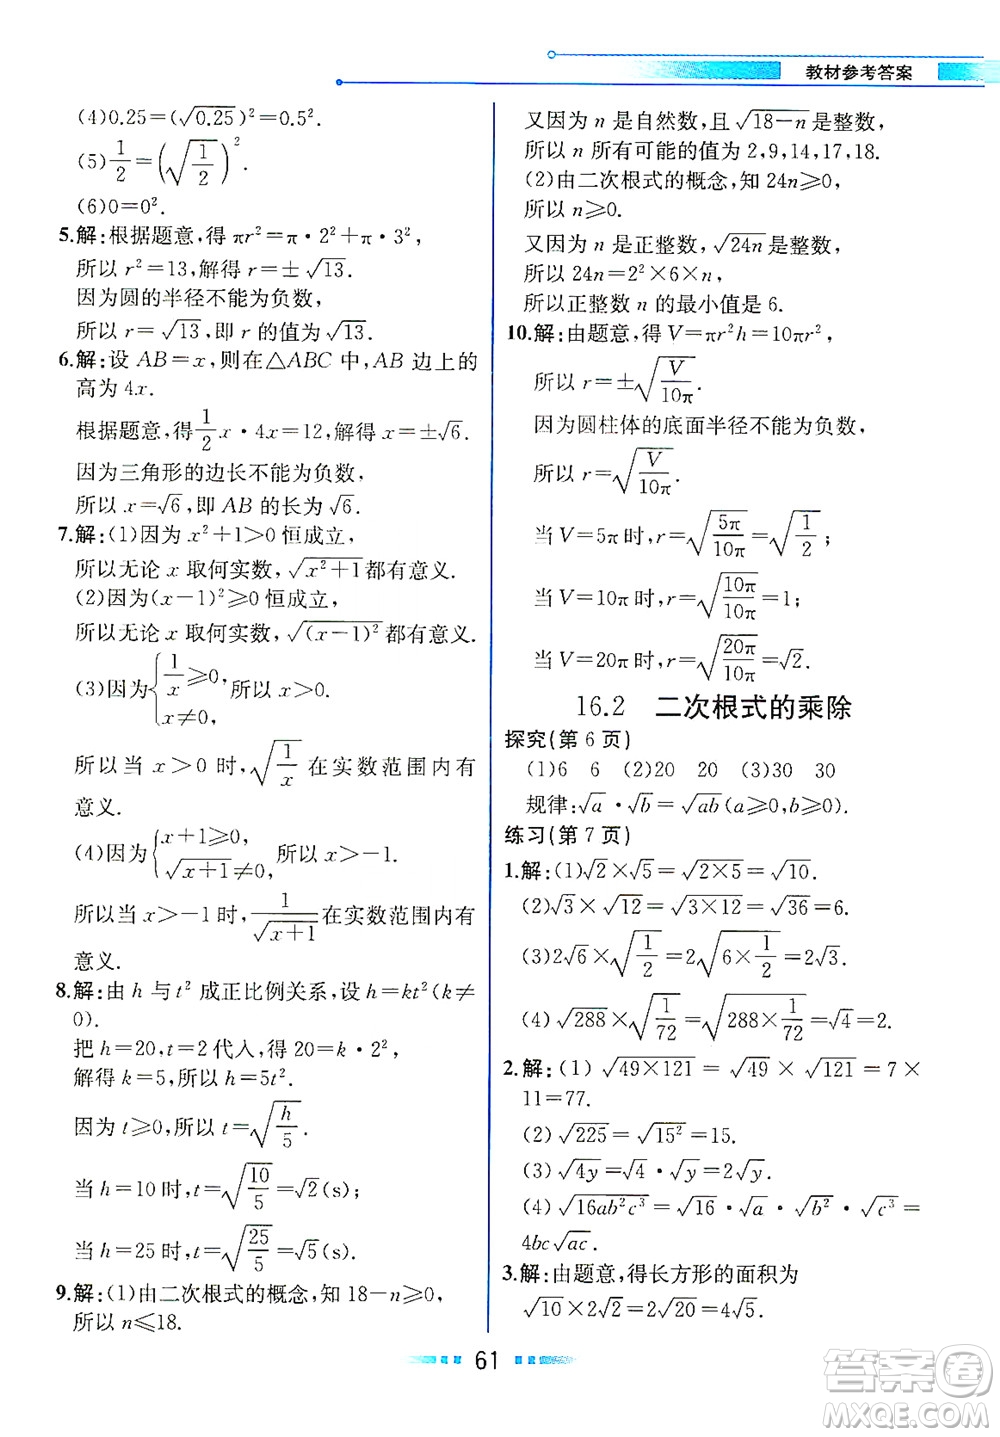 教材参考答案
(4)0.25=(√0.25)²=0.5².
(5)1/2=(√(1/2))².
(6)0=0².
5.解:根据题意,得 πr²=π·2²+π·3²,
所以 r²=13,解得 r=±√13.
因为圆的半径不能为负数,
所以 r=√13,即 r 的值为√13.
6.解:设 AB=x,则在△ABC 中,AB 边上的
高为 4x.
根据题意,得1/2x·4x=12,解得 x=±√6.
因为三角形的边长不能为负数,
所以 x=√6,即 AB 的长为√6.
7.解:(1)因为 x²+1>0 恒成立,
所以无论 x 取何实数,√(x²+1)都有意义.
(2)因为(x-1)²≥0 恒成立,
所以无论 x 取何实数,√((x-1)²)都有意义.
(3)因为{1/x≥0, x≠0,所以 x>0.
所以当 x>0 时,√(1/x)在实数范围内有
意义.
(4)因为{x+1≥0, √(x+1)≠0,所以 x>-1.
所以当 x>-1 时,1/√(x+1)在实数范围内有
意义.
8.解:由 h 与 t² 成正比例关系,设 h=kt²(k≠
0).
把 h=20,t=2 代入,得 20=k·2²,
解得 k=5,所以 h=5t².
因为 t≥0,所以 t=√(h/5).
当 h=10 时,t=√(10/5)=√2(s);
当 h=25 时,t=√(25/5)=√5(s).
9.解:(1)由二次根式的概念,知 18-n≥0,
所以 n≤18.
又因为 n 是自然数,且√(18-n)是整数,
所以 n 所有可能的值为 2,9,14,17,18.
(2)由二次根式的概念,知 24n≥0,
所以 n≥0.
又因为 n 是正整数,√(24n)是整数,
所以 24n=2²×6×n,
所以正整数 n 的最小值是 6.
10.解:由题意,得 V=πr²h=10πr²,
所以 r=±√(V/10π).
因为圆柱体的底面半径不能为负数,
所以 r=√(V/10π).
当 V=5π 时,r=√(5π/10π)=√(1/2);
当 V=10π 时,r=√(10π/10π)=1;
当 V=20π 时,r=√(20π/10π)=√2.
16.2 二次根式的乘除
探究(第 6 页)
(1)6 6 (2)20 20 (3)30 30
规律:√a·√b=√(ab)(a≥0,b≥0).
练习(第 7 页)
1.解:(1)√2×√5=√(2×5)=√10.
(2)√3×√12=√(3×12)=√36=6.
(3)2√6×√(1/2)=2√(6×1/2)=2√3.
(4)√288×√(1/72)=√(288×1/72)=√4=2.
2.解:(1)√(49×121)=√49×√121=7×
11=77.
(2)√225=√(15²)=15.
(3)√(4y)=√4·√y=2√y.
(4)√(16ab²c³)=√16·√a·√(b²)·√(c³)=
4bc√(ac).
3.解:由题意,得长方形的面积为
√10×2√2=2√20=4√5.
61
答案卷
MXQE.COM